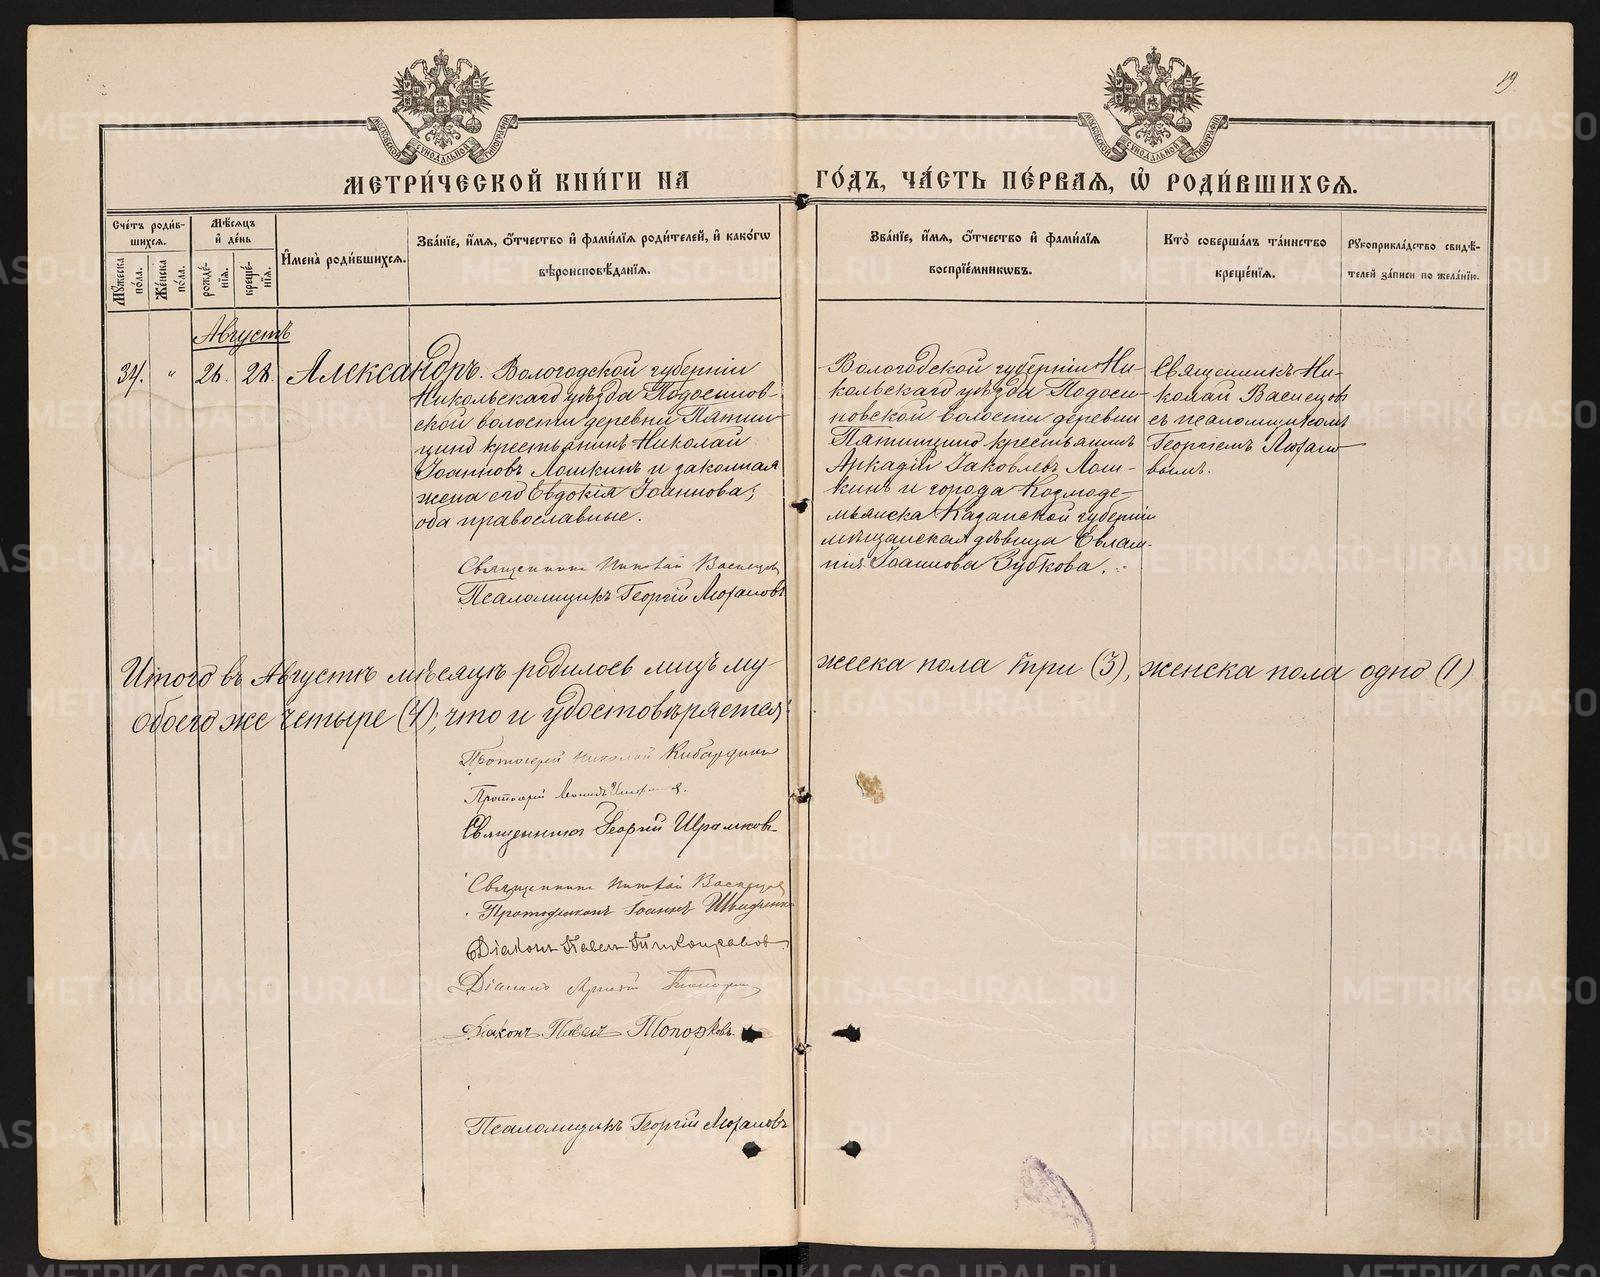 19
МОСКОВСКОЙ СѴНОДАЛЬНОЙ ТИПОГРАФІИ
МОСКОВСКОЙ СѴНОДАЛЬНОЙ ТИПОГРАФІИ
МЕТРИ́ЧЕСКОЙ КНИ́ГИ НА ГО́ДЪ, ЧА́СТЬ ПЕ́РВАѦ, Ѡ҆ РОДИ́ВШИХСѦ.
Сче́тъ роди́в-
шихсѧ.
Мꙋ́жеска по́ла.
Же́нска по́ла.
Мѣ́сѧцъ
и҆ де́нь
рожде́-
нїѧ.
креще́-
нїѧ.
И҆мена̀ роди́вшихсѧ.
Зва́нїе, и҆́мѧ, ѻ҆́тчество и҆ фами́лїѧ роди́телей, и҆ како́гѡ
вѣ́роисповѣ́данїѧ.
Зва́нїе, и҆́мѧ, ѻ҆́тчество и҆ фами́лїѧ
воспрїе́мникѡвъ.
Кто̀ соверша́лъ та́инство
креще́нїѧ.
Рꙋкоприкла́дство свидѣ́-
телей за́писи по жела́нїю.
Августъ
34. " 26. 28. Александръ.
Вологодской губерніи
Никольскаго уѣзда Подосинов-
ской волости деревни Пятни-
цино крестьянинъ Николай
Іоанновъ Лошкинъ и законная
жена его Евдокія Іоаннова;
оба православные.
Священникъ Николай Васнецовъ
Псаломщикъ Георгій
Вологодской губерніи Ни-
кольскаго уѣзда Подоси-
новской волости деревни
Пятницино крестьянинъ
Аркадій Іаковлевъ Лош-
кинъ и города Козмоде-
мьянска Казанской губерніи
мѣщанская дѣвица Евлам-
пія Іоаннова Зубкова.
Священникъ Ни-
колай Васнецовъ
съ псаломщикомъ
Георгіемъ
вымъ.
Итого въ Августѣ мѣсяцѣ родилось лицъ му-
жеска пола три (3), женска пола одно (1)
обоего же четыре (4); что и удостовѣряется:
Протоіерей Николай Кибардинъ
Протоіерей
Священникъ Георгій
Священникъ Николай Васнецовъ
Протодіаконъ Іоаннъ
Діаконъ Павелъ Тихонравовъ
Діаконъ
Діаконъ Павелъ Топорковъ.
Псаломщикъ Георгій
METRIKI.GASO-URAL.RU